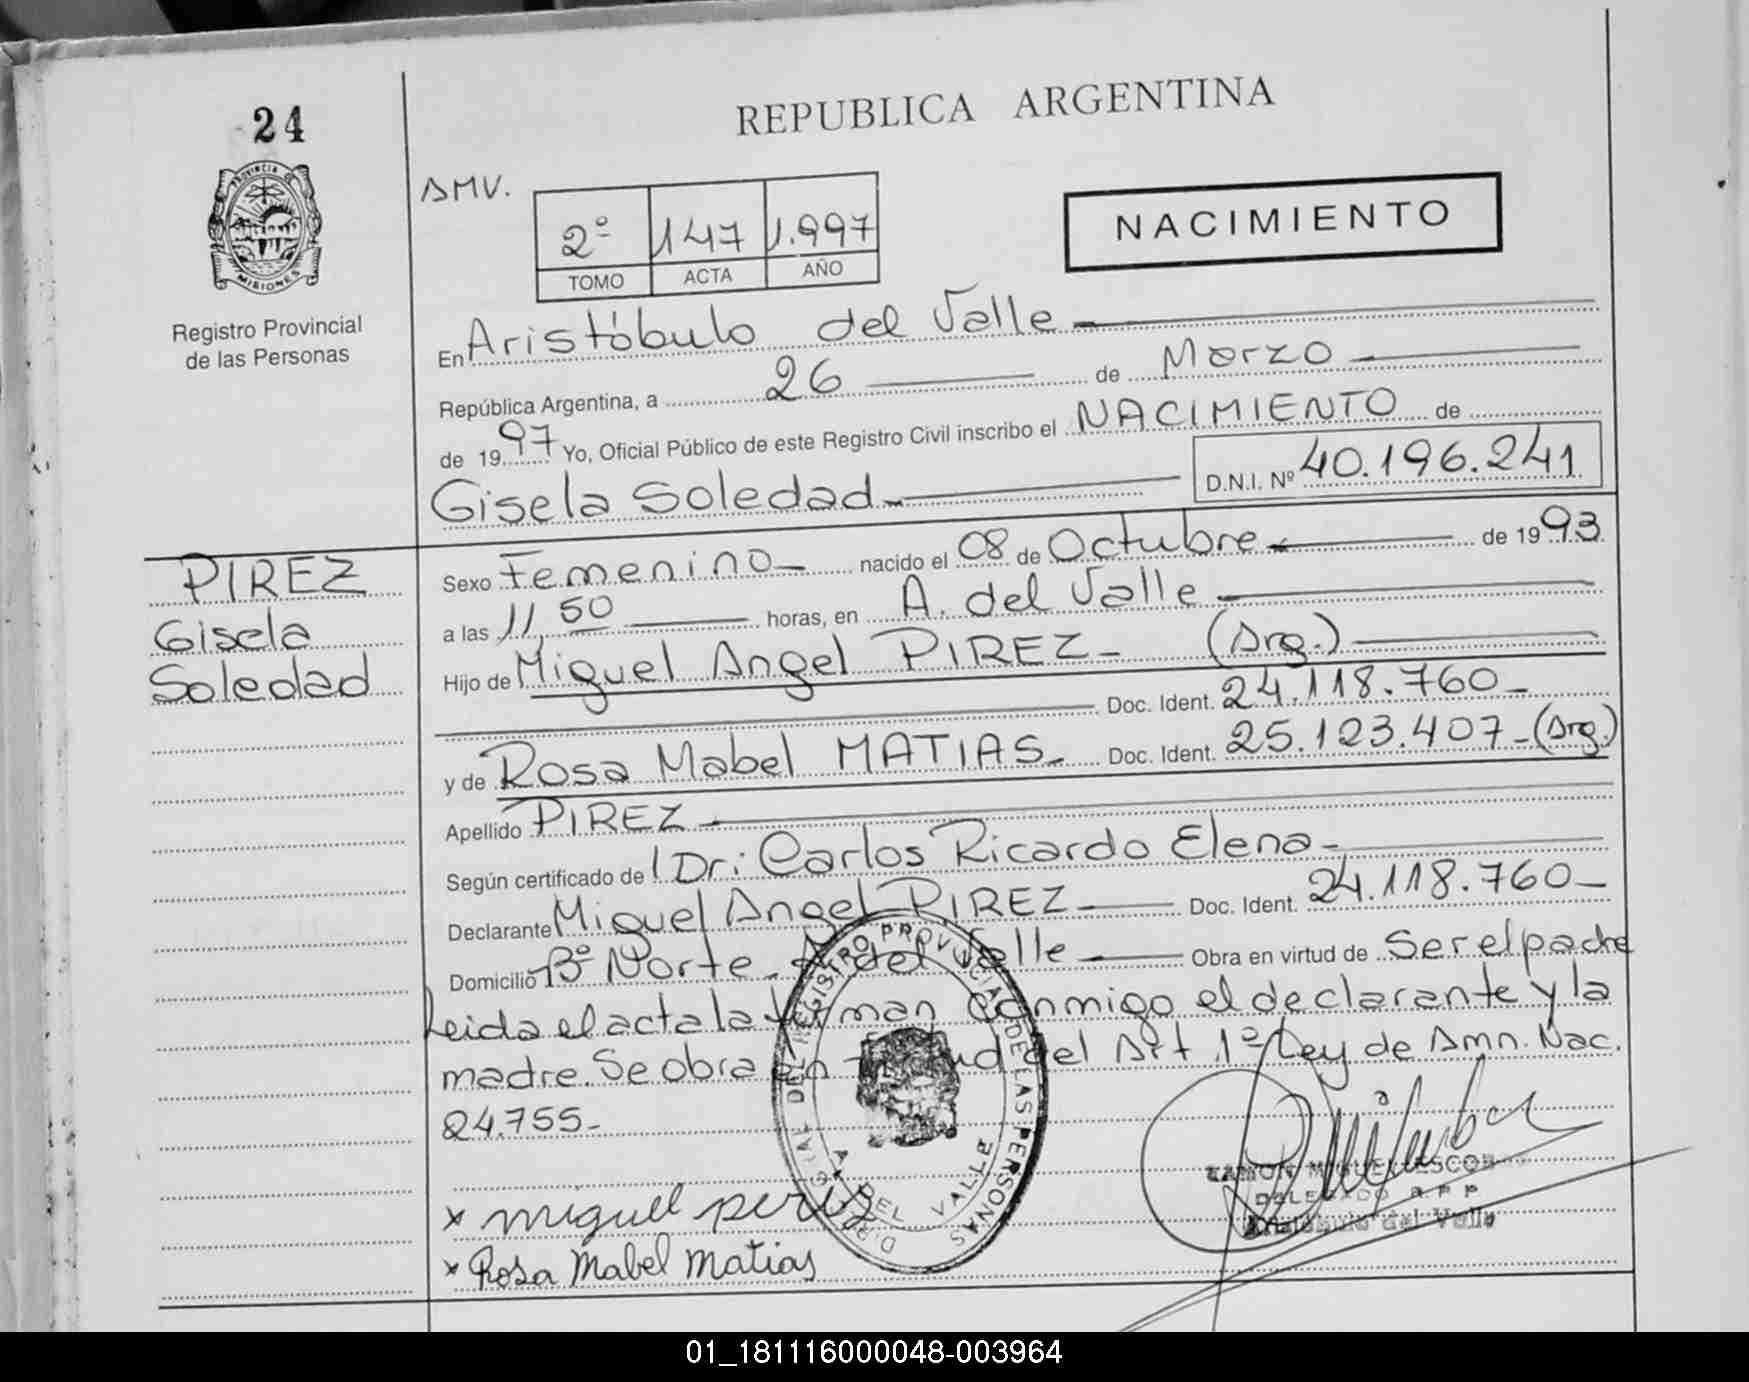 24
PROVINCIA DE
MISIONES
Registro Provincial
de las Personas
REPUBLICA ARGENTINA
AMV.
2º 147 1.997
TOMO ACTA AÑO
NACIMIENTO
En Aristóbulo del Valle
República Argentina, a 26 de Marzo
de 1997 Yo, Oficial Público de este Registro Civil inscribo el NACIMIENTO de
Gisela Soledad D.N.I. Nº 40.196.241
PIREZ
Gisela
Soledad
Sexo Femenino nacido el 08 de Octubre de 1993
a las 11,50 horas, en A. del Valle
Hijo de Miguel Angel PIREZ (Arg.)
Doc. Ident. 24.118.760
y de Rosa Mabel MATIAS Doc. Ident. 25.123.407 (Arg.)
Apellido PIREZ
Según certificado de Dr: Carlos Ricardo Elena
Declarante Miguel Angel PIREZ Doc. Ident. 24.118.760
Domicilio Bº Norte A del Valle Obra en virtud de Ser el padre
Leida el acta la firman conmigo el declarante y la
madre. Se obra en virtud del Art 1º Ley de Amn. Nac.
24.755
REGISTRO PROVINCIAL DE LAS PERSONAS
A. DEL VALLE
RAMON MIGUEL ESCOB
DELEGADO R P P
Aristóbulo del Valle
x miguel perez
x Rosa Mabel Matias
01_181116000048-003964